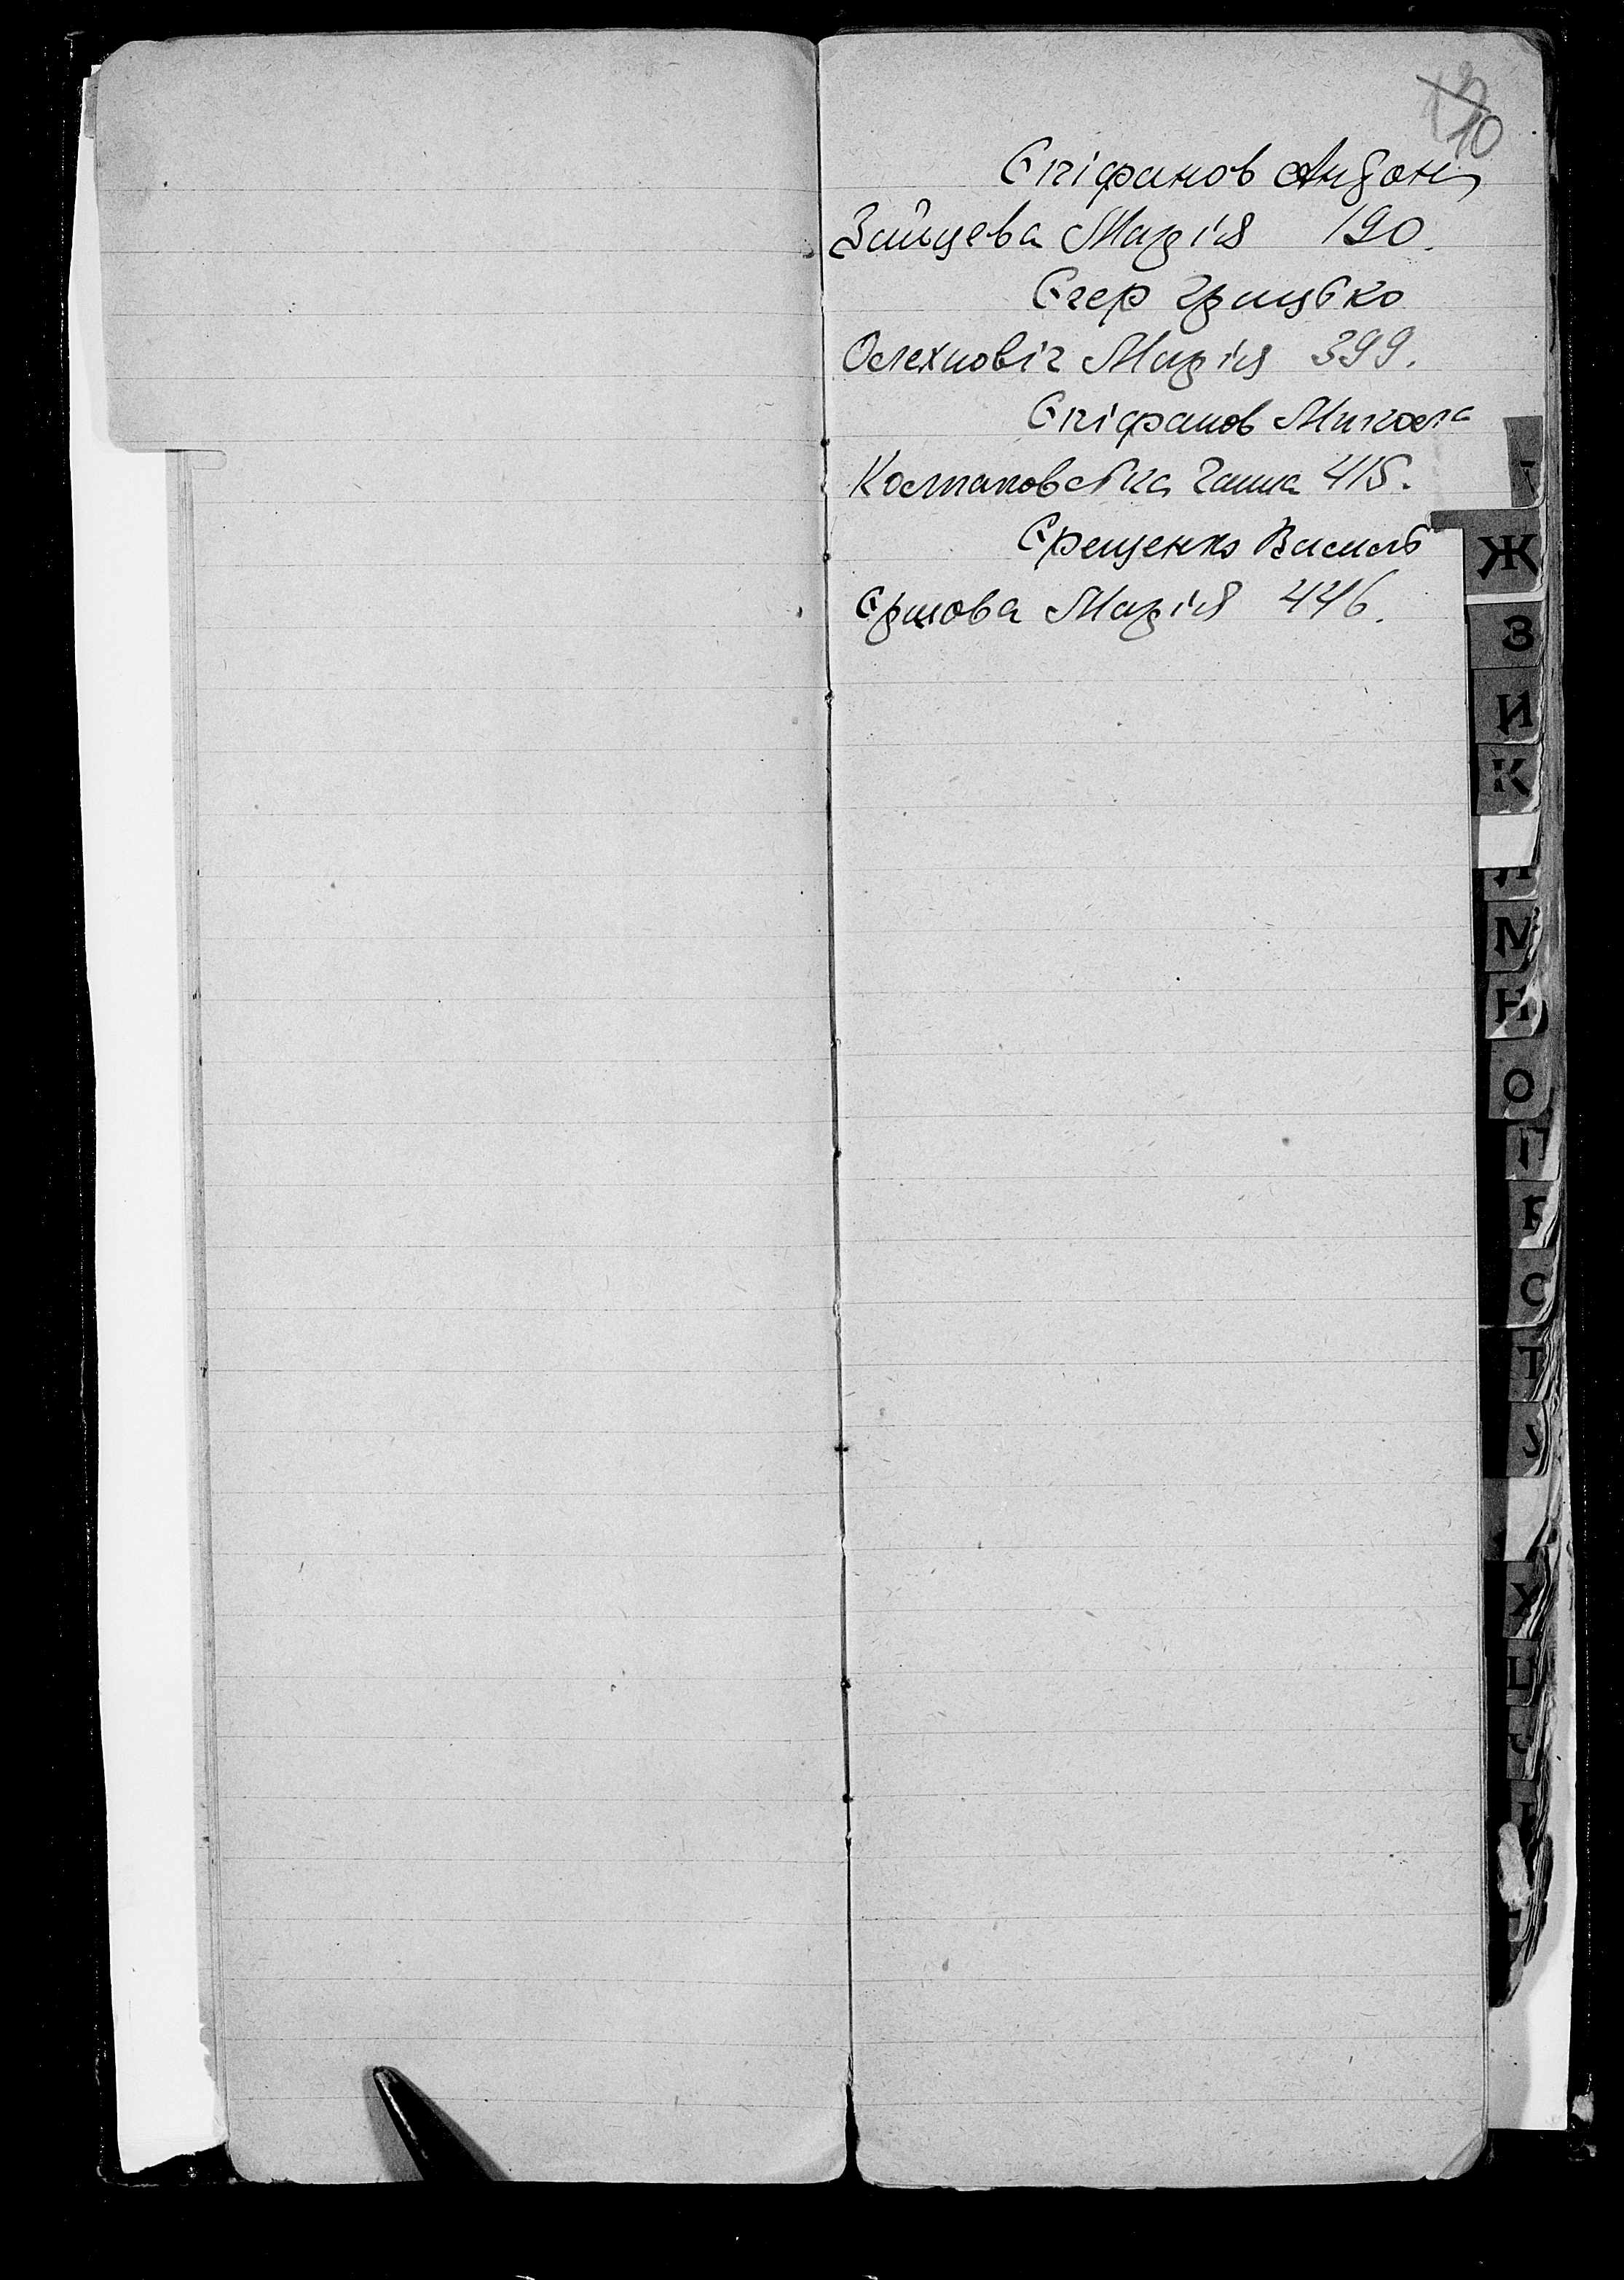 10
Єпіфанов Андон
Зайцева Марія 190.
Єгер Грицько
Олехновіч Марія 399.
Єпіфанов Микола
Ганна 415.
Єрещенко Василь
Єршова Марія 446.
Ж
З
И
К
Л
М
Н
О
П
Р
С
Т
У
Х
Ц